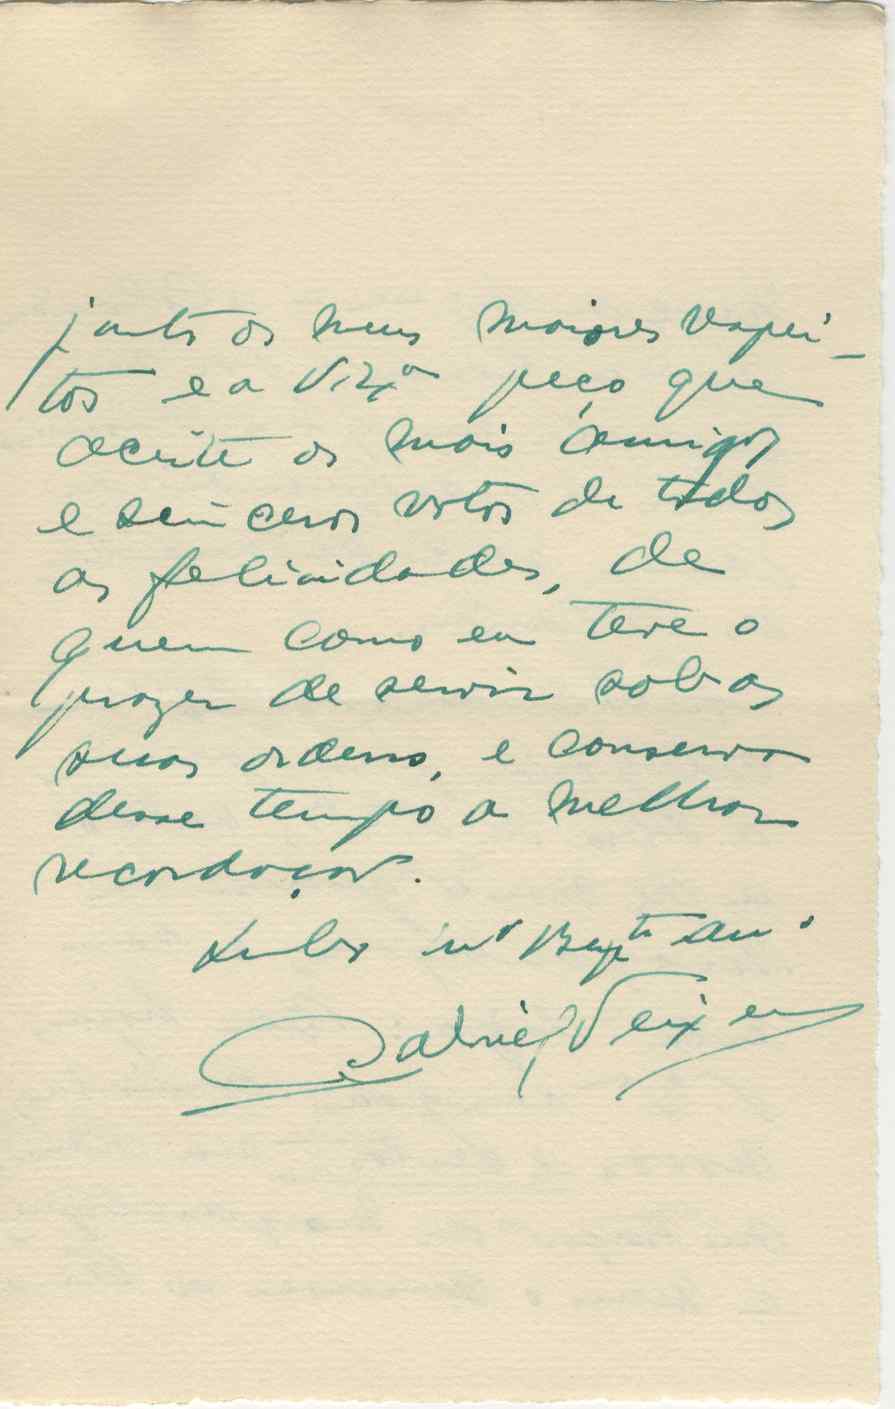 junto os meus maiores respei-
tos e a V. Exª peço que
aceite os mais amigos
e sinceros votos de todas
as felicidades, de
quem como eu teve o
prazer de servir sob as
suas ordens, e conserva
desse tempo a melhor
recordação.
Gabriel Teixeira